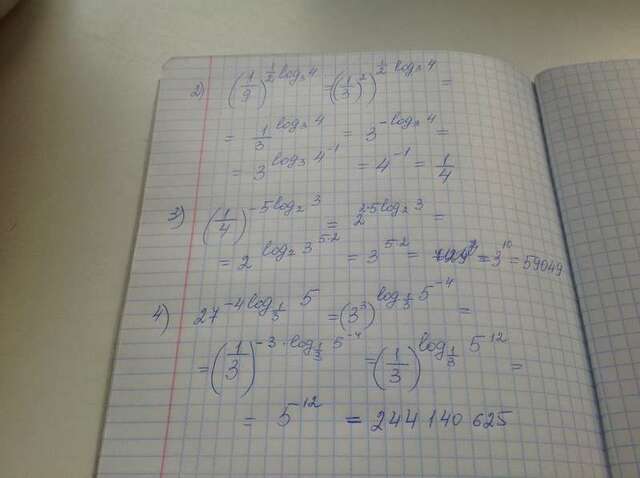 2) (1/9)^(1/2 log₃ 4) = ((1/3)²)^(1/2 log₃ 4) =
= 1/3^(log₃ 4) = 3^(-log₃ 4) =
= 3^(log₃ 4^(-1)) = 4^(-1) = 1/4
3) (1/4)^(-5log₂ 3) = 2^(2·5log₂ 3) =
= 2^(log₂ 3^(5·2)) = 3^(5·2) = = 3^10 = 59049
4) 27^(-4log_(1/3) 5) = (3³)^(log_(1/3) 5^(-4)) =
= (1/3)^(-3·log_(1/3) 5^(-4)) = (1/3)^(log_(1/3) 5^12) =
= 5^12 = 244 140 625